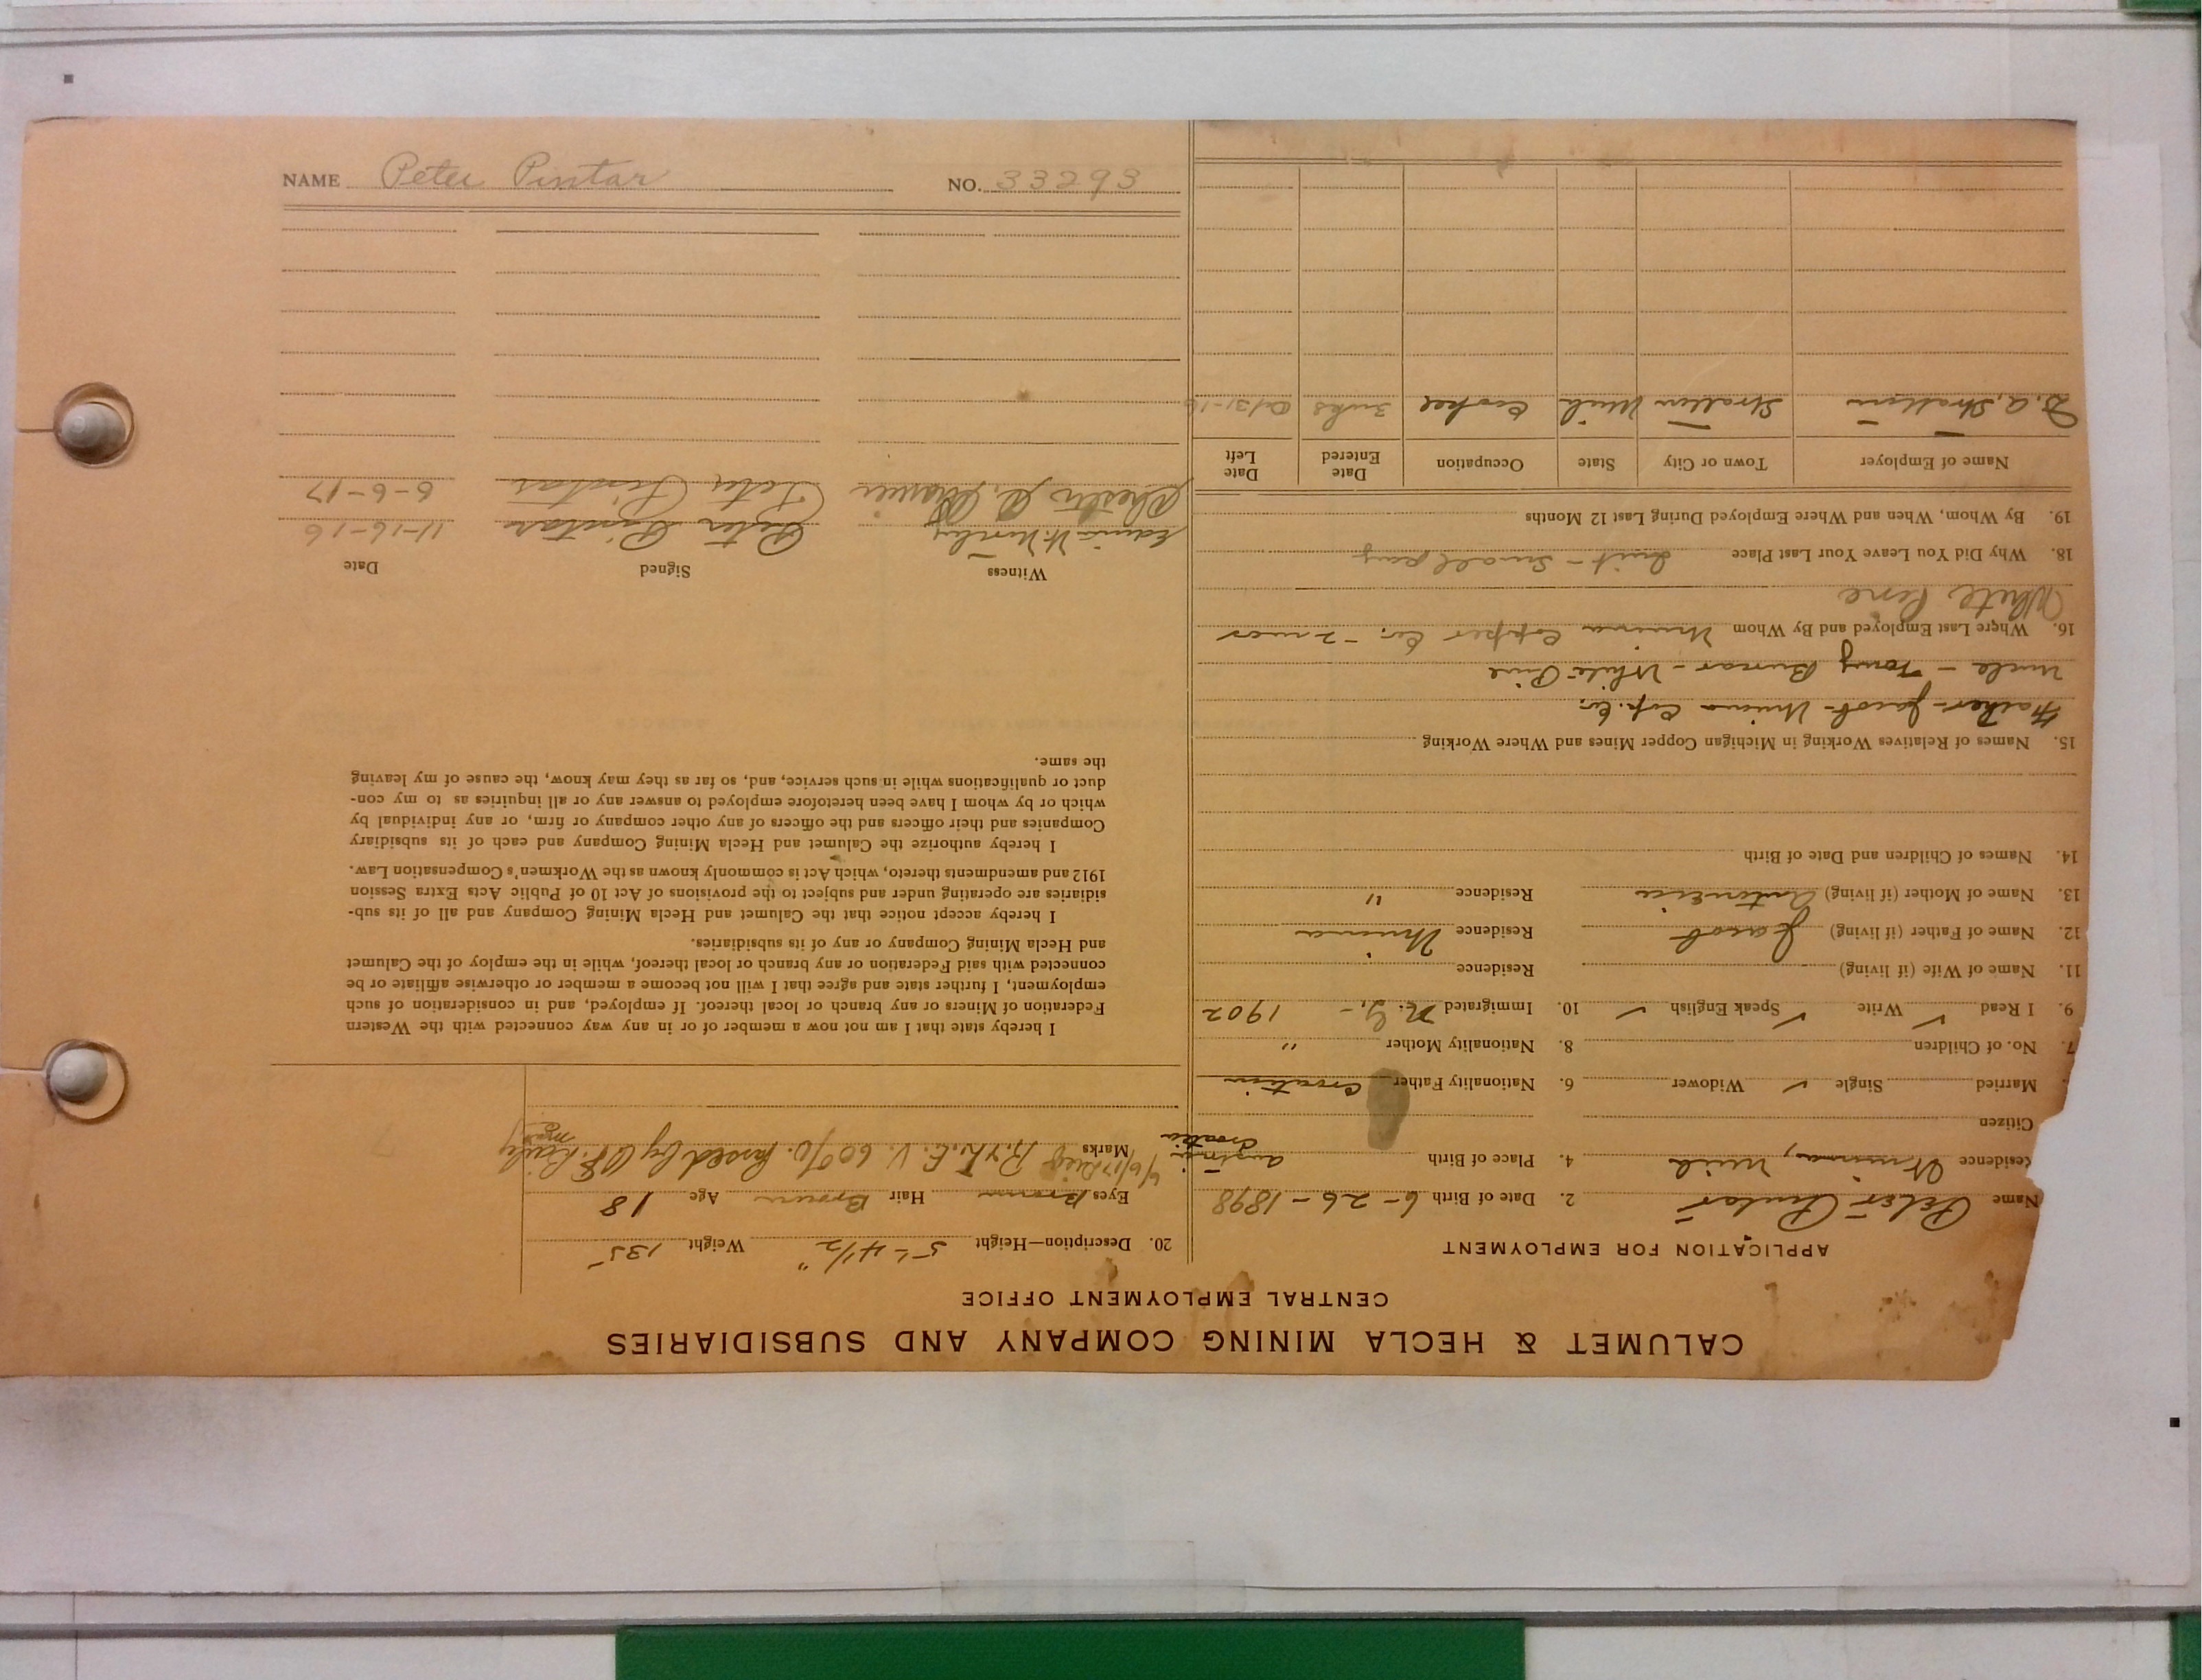 CALUMET & HECLA MINING COMPANY AND SUBSIDIARIES
CENTRAL EMPLOYMENT OFFICE
APPLICATION FOR EMPLOYMENT
Name Peter Pintar 2. Date of Birth 6-26-1898
Residence Winona, Mich 4. Place of Birth Austria
Croatia
Citizen
Married Single ✓ Widower 6. Nationality Father Croatian
7. No. of Children 8. Nationality Mother "
9. I Read ✓ Write ✓ Speak English ✓ 10. Immigrated N.Y.- 1902
11. Name of Wife (if living) Residence
12. Name of Father (if living) Jacob Residence Winona
13. Name of Mother (if living) Residence "
14. Names of Children and Date of Birth
15. Names of Relatives Working in Michigan Copper Mines and Where Working
Father-Jacob-Winona Cop. Co.
Uncle - Tony - White Pine
16. Where Last Employed and By Whom Winona Copper Co. - 2 mos
White Pine
18. Why Did You Leave Your Last Place Quit - Small pay
19. By Whom, When and Where Employed During Last 12 Months
Name of Employer Town or City State Occupation Date Entered Date Left
Stratton Mich Cookee 3 wks Oct 31-16
20. Description—Height 5'-4 1/2" Weight 135
Eyes Brown Hair Brown Age 18
Marks 6/6/17 R. & L. E. V. 60%. Passed by
I hereby state that I am not now a member of or in any way connected with the Western
Federation of Miners or any branch or local thereof. If employed, and in consideration of such
employment, I further state and agree that I will not become a member or otherwise affiliate or be
connected with said Federation or any branch or local thereof, while in the employ of the Calumet
and Hecla Mining Company or any of its subsidiaries.
I hereby accept notice that the Calumet and Hecla Mining Company and all of its sub-
sidiaries are operating under and subject to the provisions of Act 10 of Public Acts Extra Session
1912 and amendments thereto, which Act is commonly known as the Workmen's Compensation Law.
I hereby authorize the Calumet and Hecla Mining Company and each of its subsidiary
Companies and their officers and the officers of any other company or firm, or any individual by
which or by whom I have been heretofore employed to answer any or all inquiries as to my con-
duct or qualifications while in such service, and, so far as they may know, the cause of my leaving
the same.
Witness Signed Date
Peter Pintar 11-16-16
Peter Pintar 6-6-17
NAME Peter Pintar NO. 33293